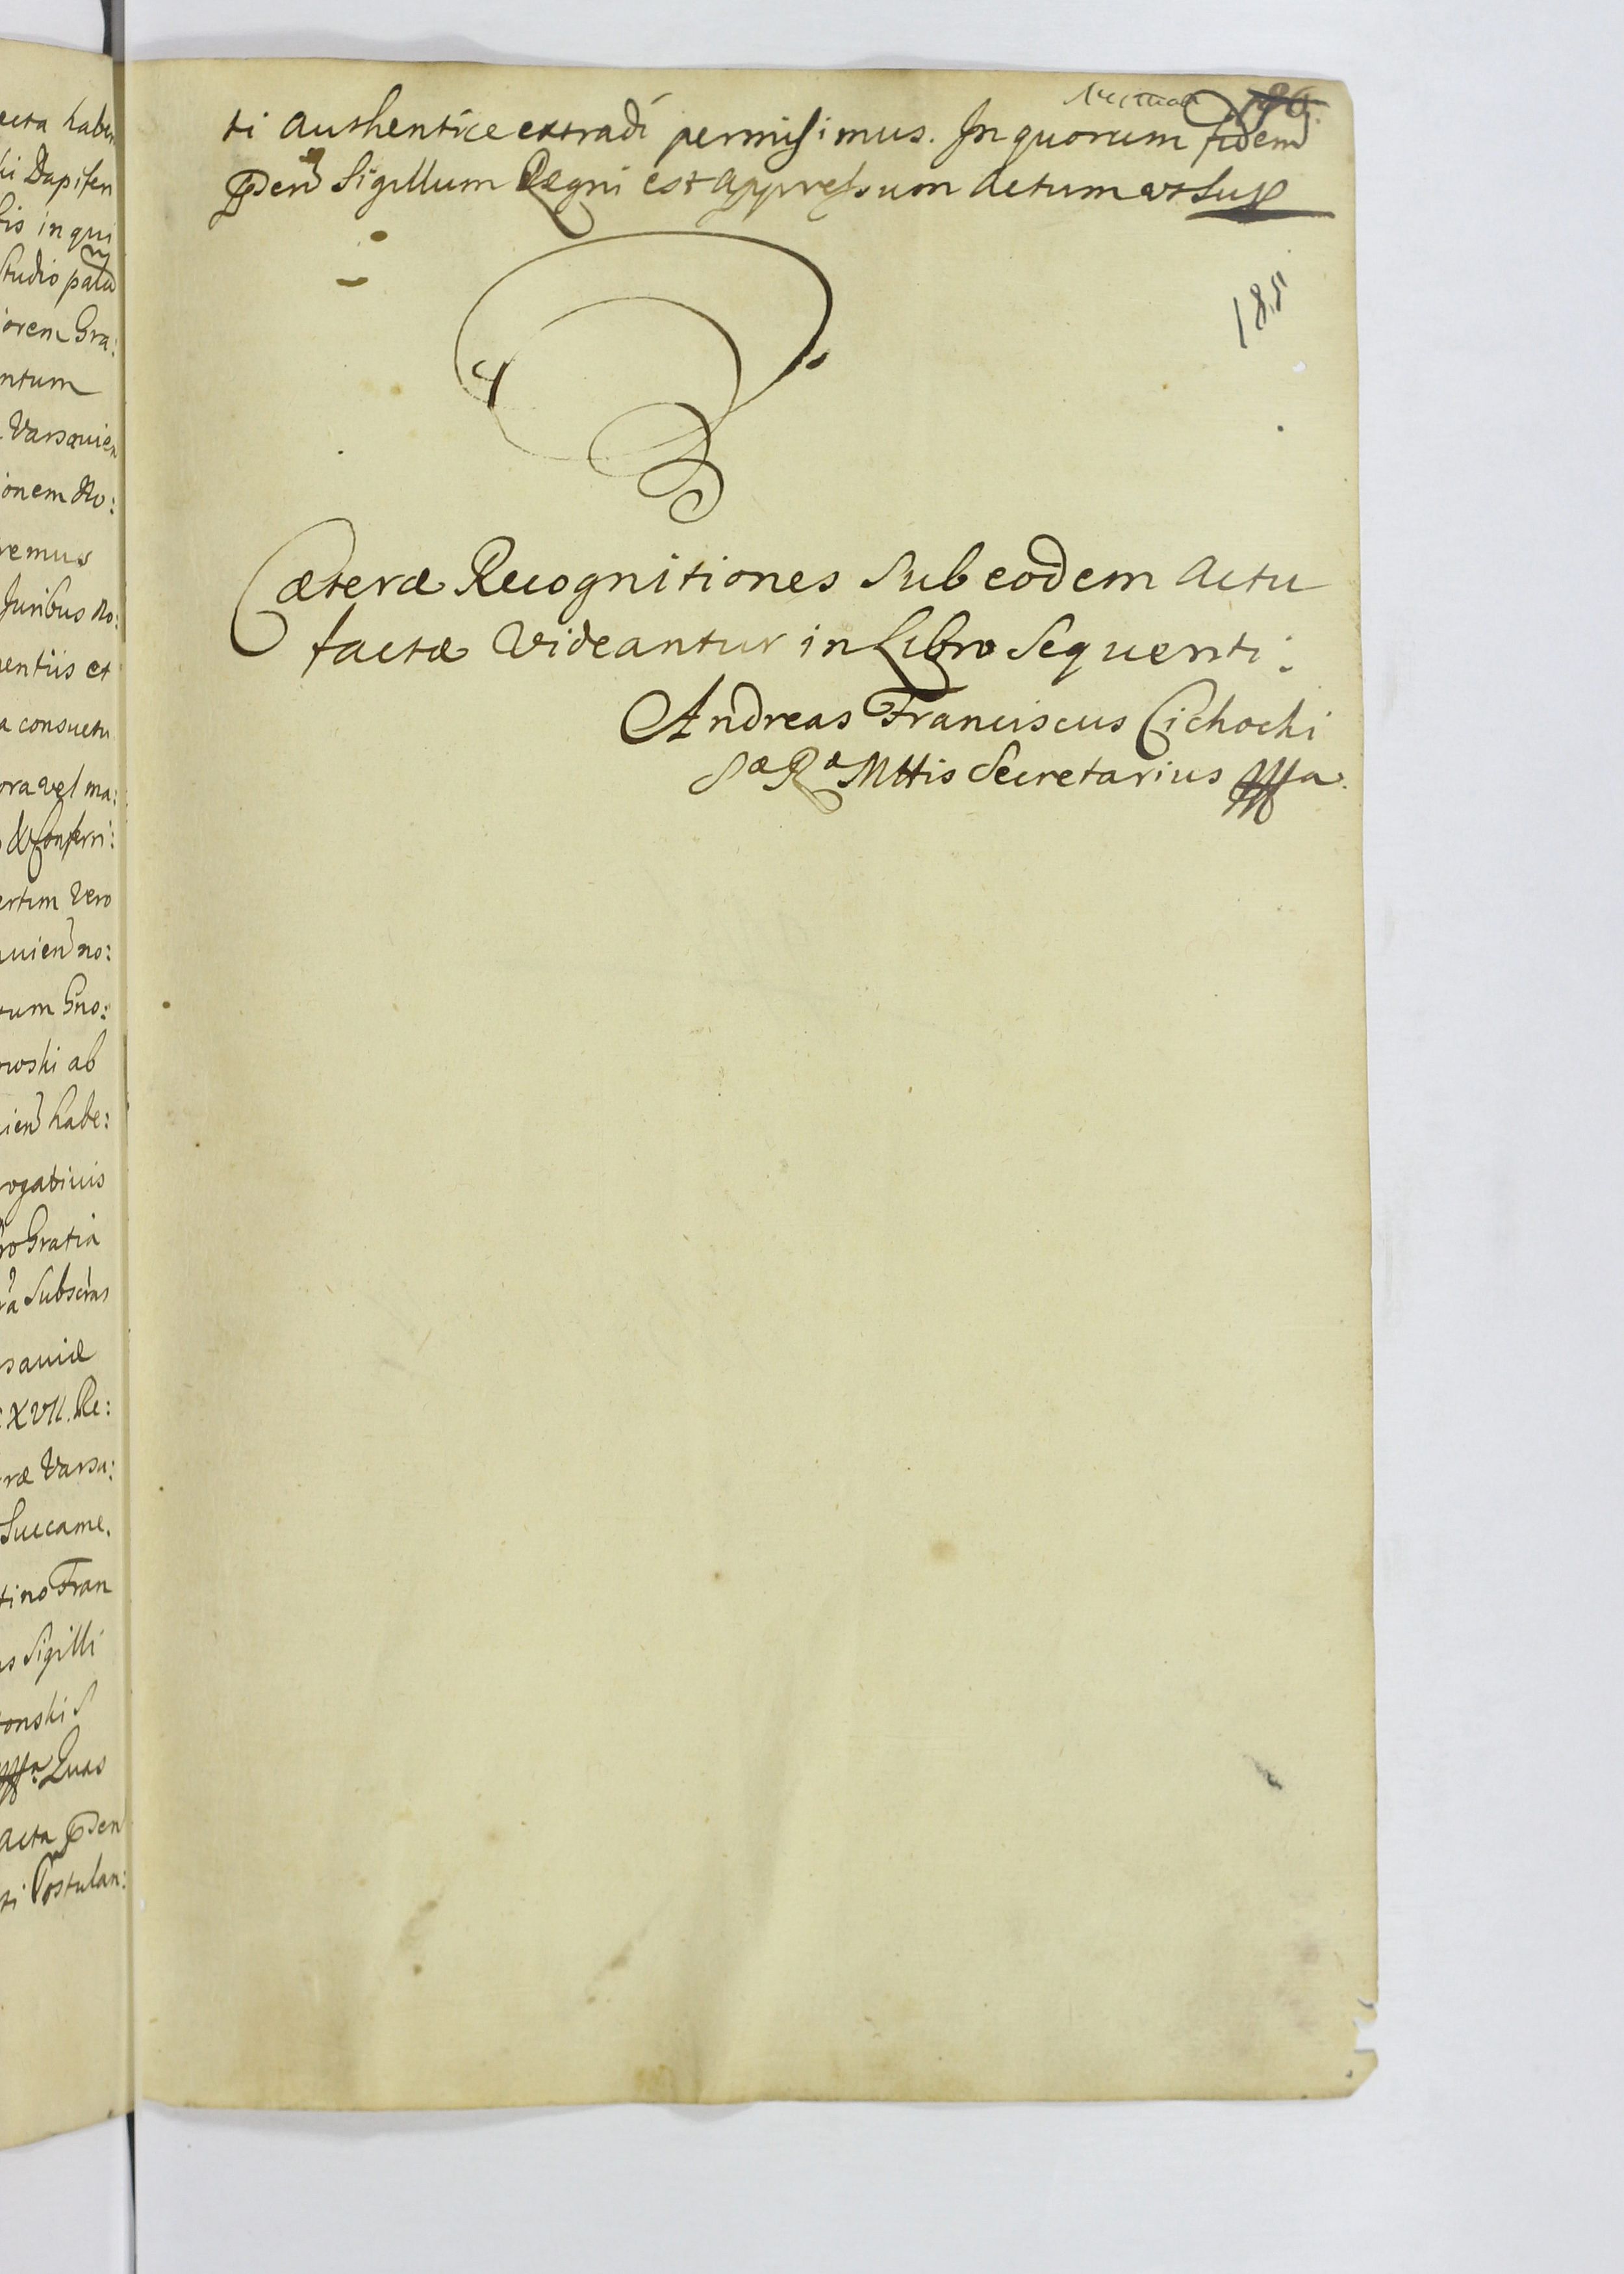 ecta haben
ki Dapiferi
tis in qui
studio parād
iorem Gra:
ntum
Varsavien
ionem No:
remus
Juribus No:
nentiis et
a consuetu
ora vel ma:
ertim Vero
uuien no:
tum Gno:
woski ab
ien habe:
rogativis
ro Gratia
ra Subscras
saviæ
XVII. Re:
ræ Varsa:
Succame.
tino Fran
s Sigilli
onski S
Mppa Quas
acta Pden
ti Postulan:
ti authentice extradi permisimus. In quorum fidem
Pden Sigillum Regni est appressum Actum ut Sup
185
Cæteræ Recognitiones Sub eodem Actu
factæ Videantur in Libro Sequenti:
Andreas Franciscus Cichocki
Sæ Ræ Mttis Secretarius Mppa